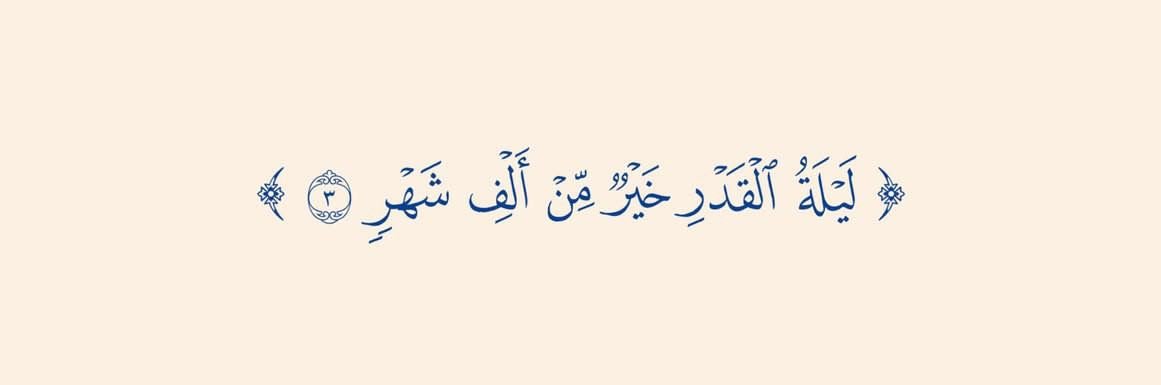 ﴿ لَيْلَةُ ٱلْقَدْرِ خَيْرٌ مِّنْ أَلْفِ شَهْرٍ ٣ ﴾